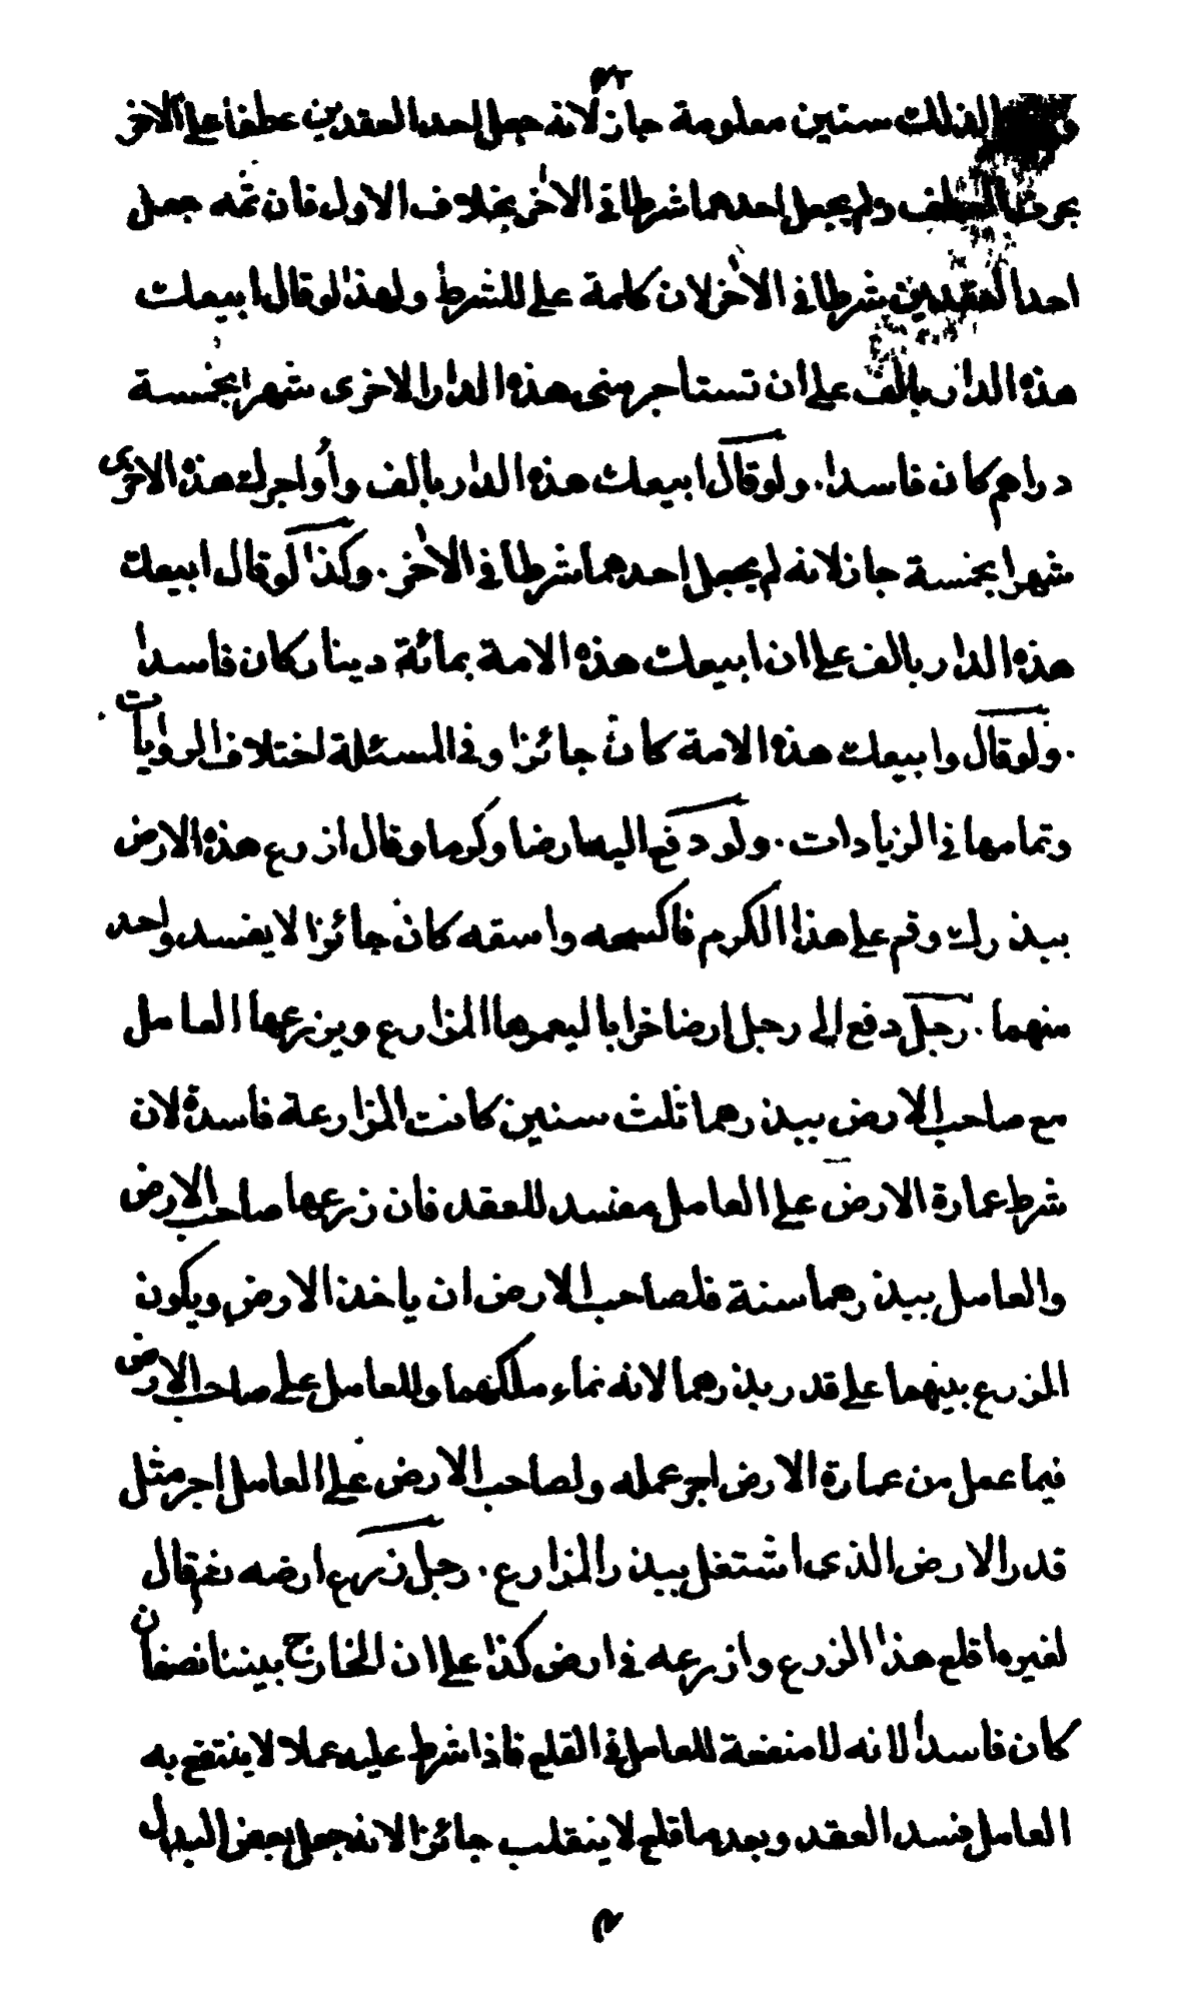 ٥٢
لذلك سنين معلومة جاز لانه جعل احد العقدين عطفا على الاخر
بحرف العطف ولم يجعل احدهما شرطا في الاخر بخلاف الاول فان ثمه جعل
احد العقدين شرطا في الاخر لان كلمة على للشرط ولهذا لو قال ابيعك
هذه الدار بالف على ان تستاجر منى هذه الدار الاخرى شهرا بخمسة
دراهم كان فاسدا . ولو قال ابيعك هذه الدار بالف واواجرك هذه الاخرى
شهرا بخمسة جاز لانه لم يجعل احدهما شرطا في الاخر . وكذا لو قال ابيعك
هذه الدار بالف على ان ابيعك هذه الامة بمائة دينار كان فاسدا
. ولو قال وابيعك هذه الامة كان جائزا وفي المسئلة اختلاف الروايات
وتمامها في الزيادات . ولو دفع اليه ارضا وكرما وقال ازرع هذه الارض
ببذرك وقم على هذا الكرم فاكسحه واسقه كان جائزا لا يفسد واحد
منهما . رجل دفع الى رجل ارضا خرابا ليعمرها المزارع ويزرعها العامل
مع صاحب الارض ببذرهما ثلث سنين كانت المزارعة فاسدة لان
شرط عمارة الارض على العامل مفسد للعقد فان زرعها صاحب الارض
والعامل ببذرهما سنة فلصاحب الارض ان ياخذ الارض ويكون
الزرع بينهما على قدر بذرهما لانه نماء ملكهما وللعامل على صاحب الارض
فيما عمل من عمارة الارض اجر عمله ولصاحب الارض على العامل اجر مثل
قدر الارض الذى اشتغل ببذر المزارع . رجل زرع ارضه ثم قال
لغيره اقلع هذا الزرع وازرعه في ارض كذا على ان الخارج بيننا نصفان
كان فاسدا لانه لا منفعة للعامل في القلع فاذا شرط عليه عملا لا ينتفع به
العامل فسد العقد وبعد ما قلع لا ينقلب جائزا لانه جعل بعض البدل